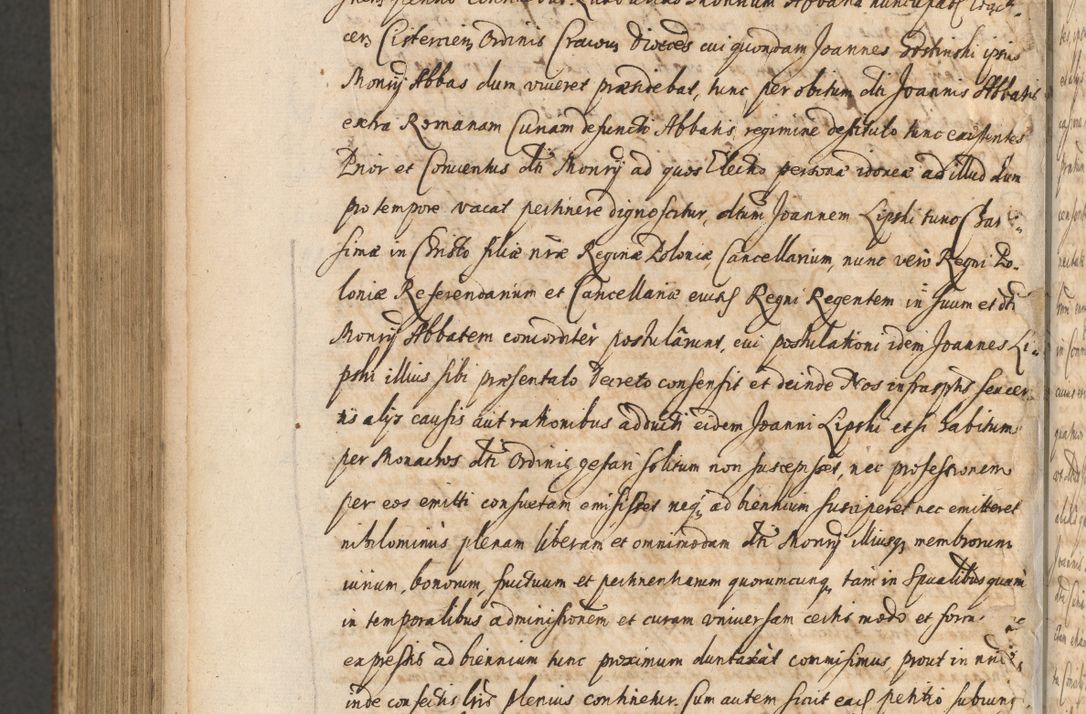 cen Cistercien Ordinis Cracovien Dioeces cui quondam Joannes Gostinski ipsius
Monrij Abbas dum viveret præsidebat, tunc per obitum dti Joannis Abbatis
extra Romanam Curiam defuncti Abbatis regimine destituto tunc existentes
Prior et Conventus dti Monrij ad quos Electio personæ idoneæ ad illud dum
pro tempore vacat pertinere dignoscitur, dtum Joannem Lipski tunc Charis-
simæ in Christo filiæ nræ Reginæ Poloniæ, Cancellarium, nunc vero Regni Po-
loniæ Referendarium et Cancellariæ eiusd Regni Regentem in suum et dti
Monrij Abbatem concorditer postularunt, cui postulationi idem Joannes Li-
pski illius sibi præsentato Decreto consensit et deinde Nos infrasptis
ijs alijs causis aut rationibus adducti eidem Joanni Lipski etsi habitum
per Monachos dti Ordinis gestari solitum non suscepisset, nec professionem
per eos emitti consuetam emisisset neq, ad biennium susciperet nec emitteret
nihilominus plenam liberam et omnimodam dti Monrij illiusq, membrorum
iurium, bonorum, fructuum et pertinentiarum quorumcunq, tam in Spualibus quam
in temporalibus administionem et curam universam certis modo et form
expressis ad biennium tunc proximum duntaxat commisimus, prout in nris
inde confectis lris plenius continetur. Cum autem sicut ead petitio subiung